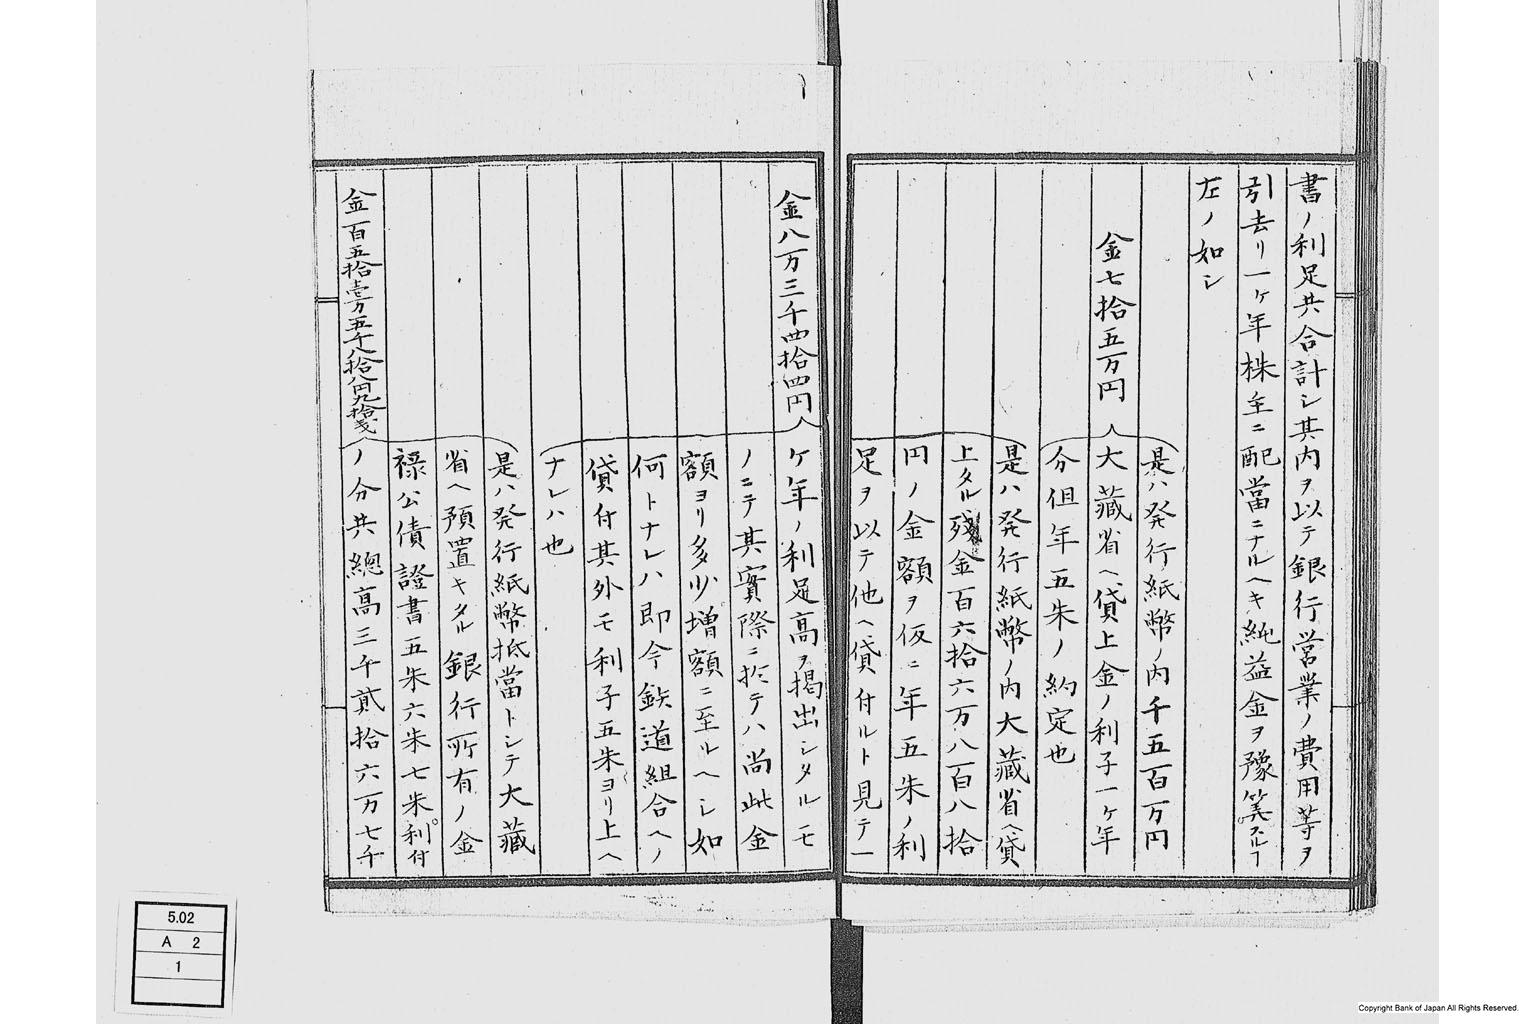 書ノ利足共合計シ其内ヲ以テ銀行営業ノ費用等ヲ
引去リ一ケ年株主ニ配當ニナルヘキ純益金ヲ豫算スルヿ
左ノ如シ
是ハ発行紙幣ノ内千五百万円
金七拾五万円
大藏省ヘ貸上金ノ利子一ケ年
分但年五朱ノ約定也
是ハ発行紙幣ノ内大藏省ヘ貸
上タル残金百六拾六万八百八拾
円ノ金額ヲ仮ニ年五朱ノ利
足ヲ以テ他ヘ貸付ルト見テ一
金八万三千四拾四円
ケ年ノ利足高ヲ掲出シタルモ
ノニテ其實際ニ於テハ尚此金
額ヨリ多少増額ニ至ルヘシ如
何トナレハ即今鉄道組合ヘノ
貸付其外モ利子五朱ヨリ上ヘ
ナレハ也
是ハ発行紙幣抵當トシテ大藏
省ヘ預置キタル銀行所有ノ金
禄公債證書五朱六朱七朱利付
金百五拾壱万五千八拾八円九拾銭
ノ分共總高三千貳拾六万七千
5.02
A 2
1
Copyright Bank of Japan All Rights Reserved.